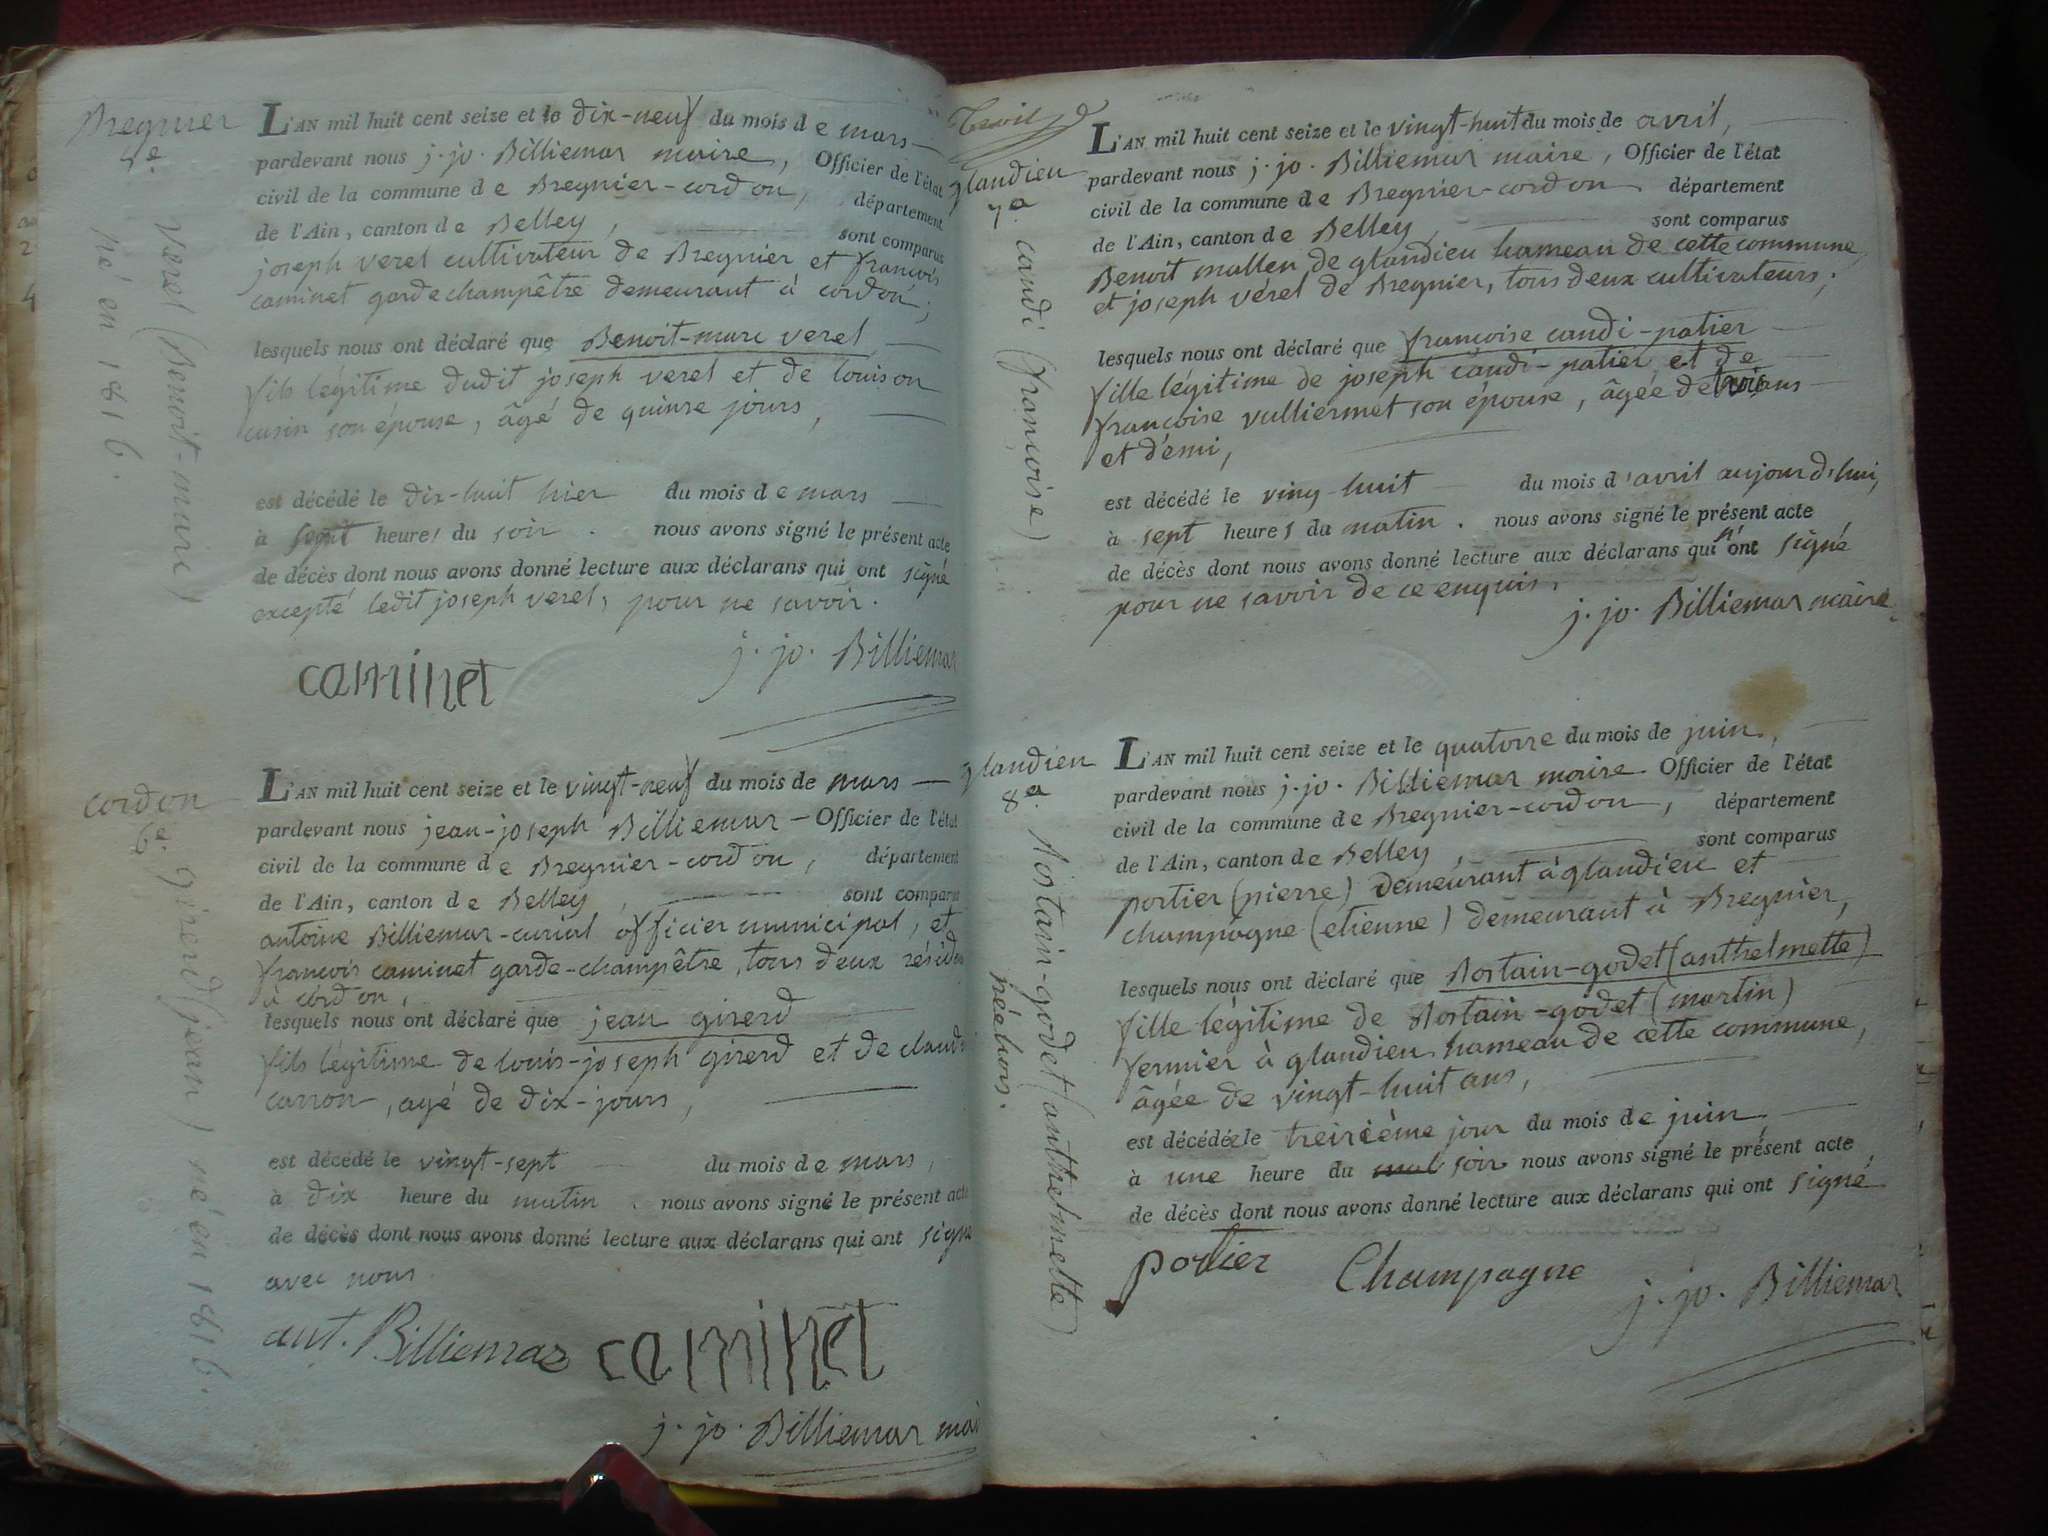 Bregnier
5e.
verel (Benoit-marc)
né en 1816.
L'AN mil huit cent seize et le dix-neuf du mois de mars
pardevant nous j. jo. Billiemar maire, Officier de l'état
civil de la commune de Bregnier-cordon, département
de l'Ain, canton de Belley, sont comparus
joseph verel cultivateur de Bregnier et françois
caminet garde champêtre demeurant à cordon;
lesquels nous ont déclaré que Benoit-marc verel
fils légitime dudit joseph verel et de louison
cusin son épouse, âgé de quinze jours,
est décédé le dix-huit hier du mois de mars
à sept heures du soir. nous avons signé le présent acte
de décès dont nous avons donné lecture aux déclarans qui ont signé
excepté ledit joseph verel, pour ne savoir.
caminet j. jo. Billiemar
cordon
6e.
girerd (jean) né en 1816.
L'AN mil huit cent seize et le vingt-neuf du mois de mars
pardevant nous jean-joseph Billiemar Officier de l'état
civil de la commune de Bregnier-cordon, département
de l'Ain, canton de Belley, sont comparus
antoine Billiemar-curial officier municipal, et
françois caminet garde-champêtre, tous deux résid
à cordon,
lesquels nous ont déclaré que jean girerd
fils légitime de louis-joseph girerd et de claud
carron, agé de dix-jours,
est décédé le vingt-sept du mois de mars,
à dix heure du matin. nous avons signé le présent acte
de décès dont nous avons donné lecture aux déclarans qui ont signé
avec nous.
ant. Billiemaz caminet
j. jo. Billiemar mai
glandieu
7e.
caudi (françoise)
L'AN mil huit cent seize et le vingt-huit du mois de avril,
pardevant nous j. jo. Billiemar maire, Officier de l'état
civil de la commune de Bregnier-cordon département
de l'Ain, canton de Belley, sont comparus
Benoit mallen de glandieu hameau de cette commune,
et joseph vérel de Bregnier, tous deux cultivateurs;
lesquels nous ont déclaré que françoise caudi-patier
fille légitime de joseph caudi-patier et de
françoise vulliermet son épouse, âgée de trois ans
et démi,
est décédé le ving-huit du mois d'avril aujourd'hui,
à sept heures du matin. nous avons signé le présent acte
de décès dont nous avons donné lecture aux déclarans qui n'ont signé
pour ne savoir de ce enquis.
j. jo. Billiemar maire
glandieu
8e.
Rostain-godet (anthelmette)
née hors.
L'AN mil huit cent seize et le quatorze du mois de juin,
pardevant nous j. jo. Billiemar maire Officier de l'état
civil de la commune de Bregnier-cordon, département
de l'Ain, canton de Belley, sont comparus
portier (pierre) demeurant à glandieu et
champagne (etienne) demeurant à Bregnier,
lesquels nous ont déclaré que Rostain-godet (anthelmette)
fille légitime de Rostain-godet (martin)
fermier à glandieu hameau de cette commune,
âgée de vingt-huit ans,
est décédée le treizième jour du mois de juin
à une heure du soir nous avons signé le présent acte
de décès dont nous avons donné lecture aux déclarans qui ont signé
portier Champagne j. jo. Billiemar